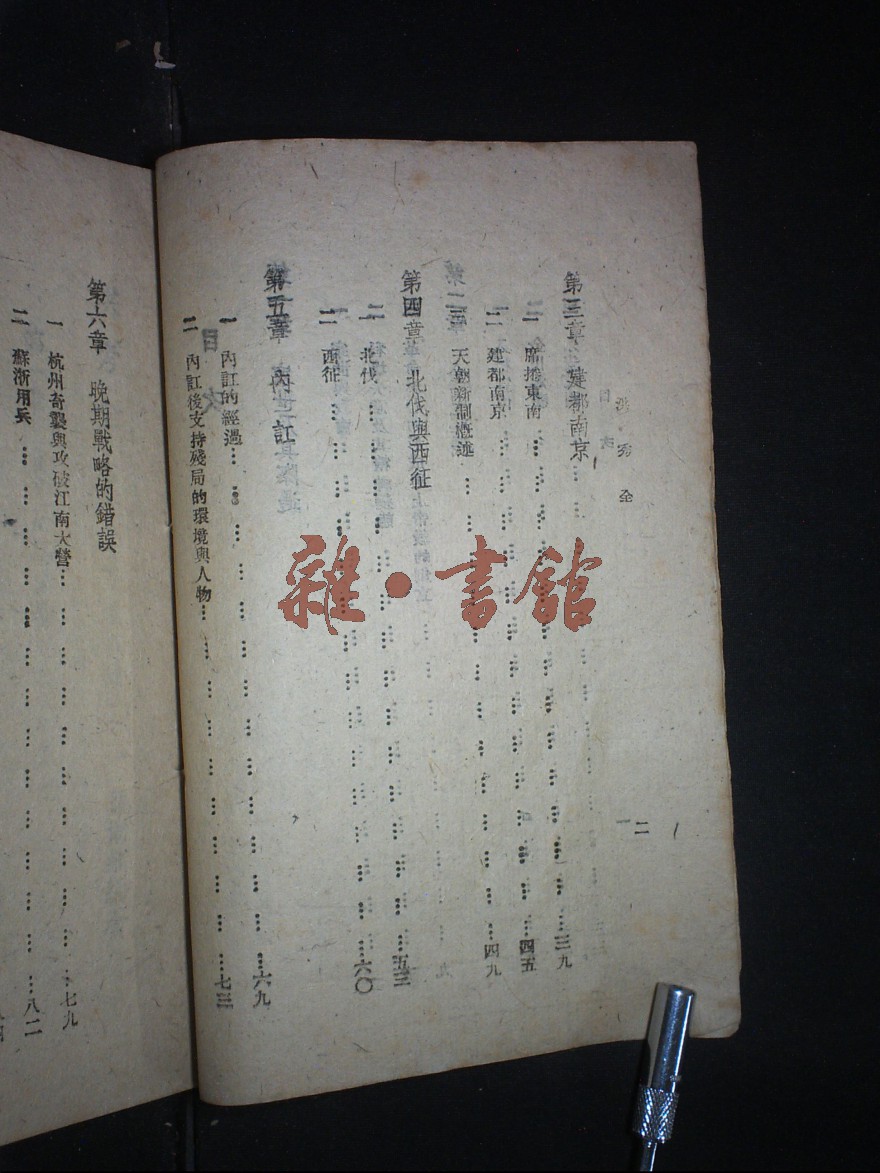 洪秀全 二
第三章 建都南京
一 席捲東南……三九
二 建都南京……四五
三 天朝新制概述……四九
第四章 北伐與西征
一 北伐……五三
二 西征……六〇
第五章 內訌
一 內訌的經過……六九
二 內訌後支持殘局的環境與人物……七三
第六章 晚期戰略的錯誤
一 杭州奇襲與攻破江南大營……七九
二 蘇浙用兵……八二
雜·書館